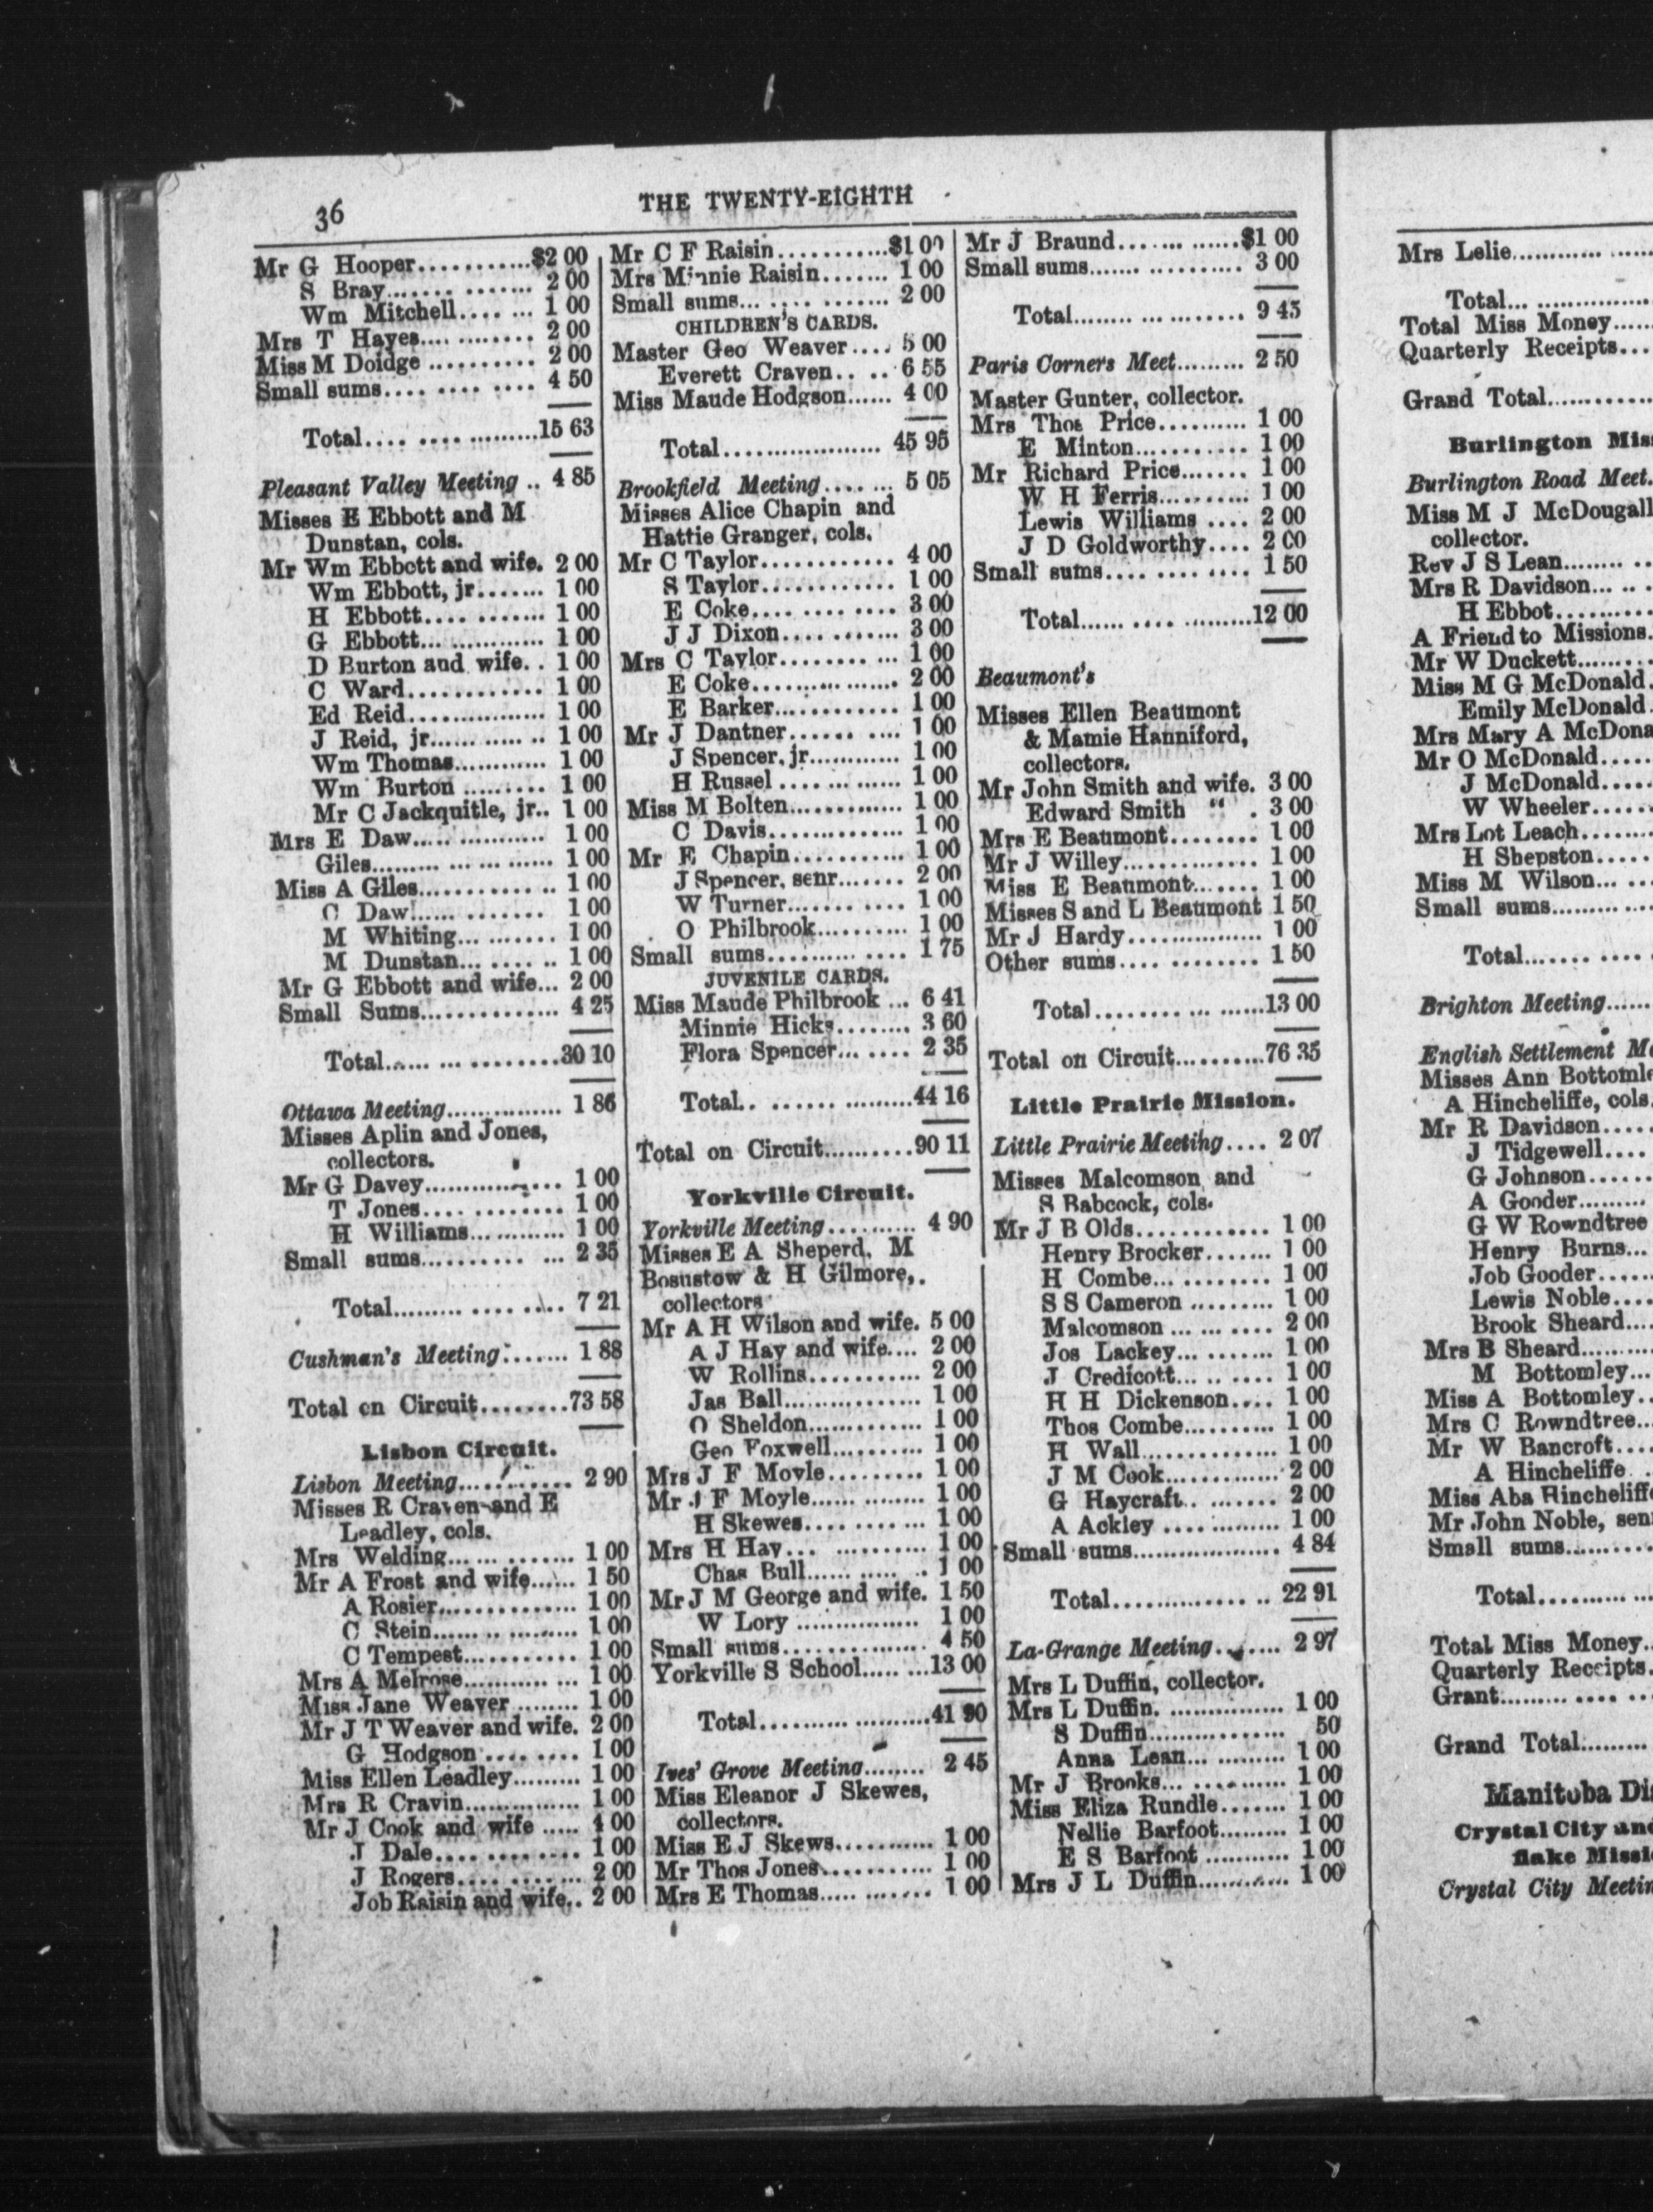 36
THE TWENTY-EIGHTH
Mr G Hooper...........$2 00
S Bray............... 2 00
Wm Mitchell....... 1 00
Mrs T Hayes............ 2 00
Miss M Doidge .......... 2 00
Small sums............ 4 50
Total.................15 63
Pleasant Valley Meeting .. 4 85
Misses E Ebbott and M
Dunstan, cols.
Mr Wm Ebbott and wife. 2 00
Wm Ebbott, jr....... 1 00
H Ebbott........... 1 00
G Ebbott............. 1 00
D Burton and wife. . 1 00
C Ward............ 1 00
Ed Reid............... 1 00
J Reid, jr............. 1 00
Wm Thomas........... 1 00
Wm Burton ......... 1 00
Mr C Jackquitle, jr.. 1 00
Mrs E Daw............... 1 00
Giles.................. 1 00
Miss A Giles............... 1 00
C Daw............. 1 00
M Whiting.......... 1 00
M Dunstan......... 1 00
Mr G Ebbott and wife... 2 00
Small Sums............. 4 25
Total.................30 10
Ottawa Meeting............... 1 86
Misses Aplin and Jones,
collectors.
Mr G Davey............... 1 00
T Jones............. 1 00
H Williams............ 1 00
Small sums............. 2 35
Total................. 7 21
Cushman's Meeting....... 1 88
Total on Circuit........73 58
Lisbon Circuit.
Lisbon Meeting............ 2 90
Misses R Craven and E
Leadley, cols.
Mrs Welding............. 1 00
Mr A Frost and wife...... 1 50
A Rosier.............. 1 00
C Stein................ 1 00
C Tempest........... 1 00
Mrs A Melrose............ 1 00
Miss Jane Weaver ......... 1 00
Mr J T Weaver and wife. 2 00
G Hodgson ........ 1 00
Miss Ellen Leadley......... 1 00
Mrs R Cravin............... 1 00
Mr J Cook and wife ..... 4 00
J Dale............. 1 00
J Rogers............ 2 00
Job Raisin and wife.. 2 00
Mr C F Raisin...........$1 00
Mrs Minnie Raisin....... 1 00
Small sums.............. 2 00
CHILDREN'S CARDS.
Master Geo Weaver.... 5 00
Everett Craven.. .. 6 55
Miss Maude Hodgson...... 4 00
Total................... 45 95
Brookfield Meeting....... 5 05
Misses Alice Chapin and
Hattie Granger, cols.
Mr C Taylor............ 4 00
S Taylor............ 1 00
E Coke............. 3 00
J J Dixon........... 3 00
Mrs C Taylor........... 1 00
E Coke............... 2 00
E Barker............ 1 00
Mr J Dantner.......... 1 00
J Spencer, jr............ 1 00
H Russel ............. 1 00
Miss M Bolten............. 1 00
C Davis.............. 1 00
Mr E Chapin........... 1 00
J Spencer, senr....... 2 00
W Turner........... 1 00
O Philbrook.......... 1 00
Small sums.............. 1 75
JUVENILE CARDS.
Miss Maude Philbrook ... 6 41
Minnie Hicks........ 3 60
Flora Spencer....... 2 35
Total.................44 16
Total on Circuit..........90 11
Yorkville Circuit.
Yorkville Meeting.......... 4 90
Misses E A Sheperd, M
Bosustow & H Gilmore,
collectors
Mr A H Wilson and wife. 5 00
A J Hay and wife.... 2 00
W Rollins........... 2 00
Jas Ball................ 1 00
O Sheldon............. 1 00
Geo Foxwell.......... 1 00
Mrs J F Moyle......... 1 00
Mr J F Moyle............. 1 00
H Skewes............ 1 00
Mrs H Hay............. 1 00
Chas Bull............. 1 00
Mr J M George and wife. 1 50
W Lory ................ 1 00
Small sums............... 4 50
Yorkville S School........13 00
Total....................41 90
Ives' Grove Meeting........ 2 45
Miss Eleanor J Skewes,
collectors.
Miss E J Skews........... 1 00
Mr Thos Jones........... 1 00
Mrs E Thomas............ 1 00
Mr J Braund.............$1 00
Small sums................ 3 00
Total.................. 9 45
Paris Corners Meet......... 2 50
Master Gunter, collector.
Mrs Thos Price.......... 1 00
E Minton............ 1 00
Mr Richard Price....... 1 00
W H Ferris.......... 1 00
Lewis Williams .... 2 00
J D Goldworthy.... 2 00
Small sums............ 1 50
Total...................12 00
Beaumont's
Misses Ellen Beaumont
& Mamie Hanniford,
collectors.
Mr John Smith and wife. 3 00
Edward Smith " . 3 00
Mrs E Beaumont........ 1 00
Mr J Willey.............. 1 00
Miss E Beaumont....... 1 00
Misses S and L Beaumont 1 50
Mr J Hardy............... 1 00
Other sums............ 1 50
Total.................13 00
Total on Circuit..........76 35
Little Prairie Mission.
Little Prairie Meeting.... 2 07
Misses Malcomson and
S Babcock, cols.
Mr J B Olds............ 1 00
Henry Brocker....... 1 00
H Combe........... 1 00
S S Cameron ......... 1 00
Malcomson .......... 2 00
Jos Lackey.......... 1 00
J Credicott.......... 1 00
H H Dickenson.... 1 00
Thos Combe.......... 1 00
H Wall.............. 1 00
J M Cook............. 2 00
G Haycraft.. ....... 2 00
A Ackley ............. 1 00
Small sums................... 4 84
Total................ 22 91
La-Grange Meeting....... 2 97
Mrs L Duffin, collector.
Mrs L Duffin. ............... 1 00
S Duffin................ 50
Anna Lean............ 1 00
Mr J Brooks............. 1 00
Miss Eliza Rundle....... 1 00
Nellie Barfoot......... 1 00
E S Barfoot ........... 1 00
Mrs J L Duffin............ 1 00
Mrs Lelie..................
Total..................
Total Miss Money......
Quarterly Receipts...
Grand Total............
Burlington
Burlington Road Meet.
Miss M J McDougall
collector.
Rev J S Lean..........
Mrs R Davidson.......
H Ebbot..........
A Friend to Missions.
Mr W Duckett........
Miss M G McDonald.
Emily McDonald.
Mrs Mary A
Mr O McDonald.....
J McDonald....
W Wheeler.....
Mrs Lot Leach........
H Shepston.....
Miss M Wilson......
Small sums............
Total............
Brighton Meeting......
English Settlement
Misses Ann
A Hincheliffe, cols.
Mr R Davidson.....
J Tidgewell....
G Johnson......
A Gooder.........
G W Rowndtree
Henry Burns...
Job Gooder......
Lewis Noble....
Brook Sheard....
Mrs B Sheard..........
M Bottomley...
Miss A Bottomley..
Mrs C Rowndtree...
Mr W Bancroft....
A Hincheliffe .
Miss Aba
Mr John Noble,
Small sums..........
Total............
Total Miss Money..
Quarterly Receipts.
Grant..............
Grand Total.........
Manitoba
Crystal City
flake
Crystal City